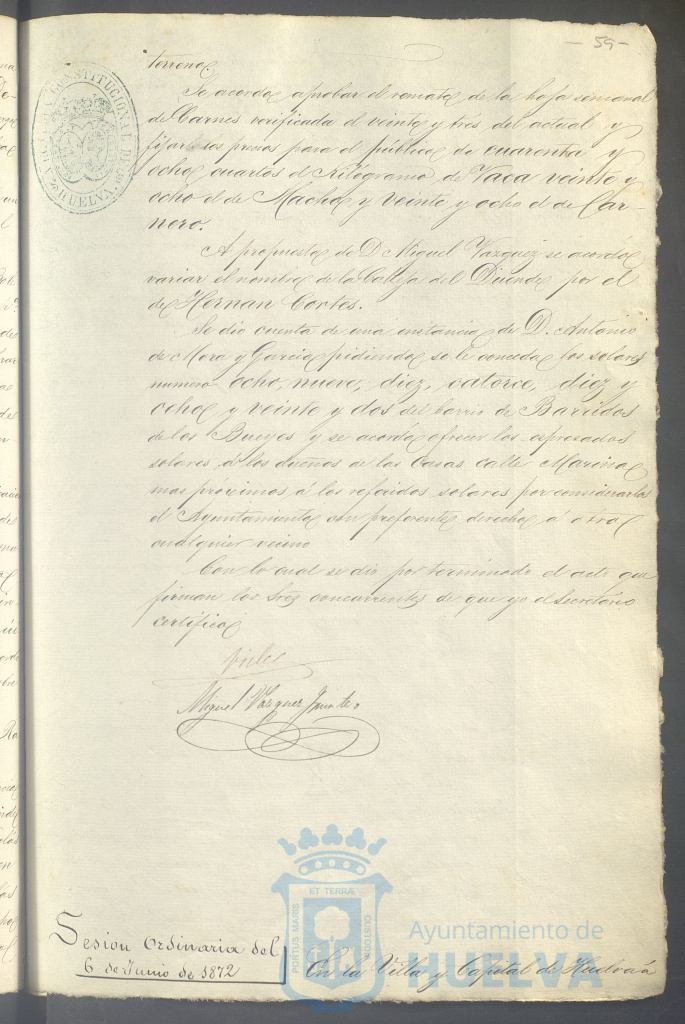 - 59 -
terreno.
Se acordó aprobar el remate de la hoja semanal
de Carnes verificada el veinte y trés del actual y
fijar los precios para el público de cuarenta y
ocho cuartos el Kilógramo de Vaca veinte y
ocho el de Macho y veinte y ocho el de Car-
nero.
A propuesta de D. Miguel Vazquez se acordó
variar el nombre de la Calleja del Duende por el
de Hernan Cortes.
Se dio cuenta de una instancia de D. Antonio
de Mora y Garcia pidiendo se le conceda los solares
numero ocho, nueve, diez, catorce, diez y
ocho y veinte y dos del barrio de
de los y se acordó ofrecer los espresados
solares á los dueños de las Casas calle Marina
mas próximos á los referidos solares por considerarlos
el Ayuntamiento con preferente derecho á otro
cualquier vecino
Con lo cual se dio por terminado el acto que
firman los Sres concurrentes de que yo el Secretario
certifico
Miguel Vazquez
Sesion Ordinaria del
6 de Junio de 1872
En la Villa y Capital de Huelva á
CONSTITUCIONAL DE
HUELVA
ET TERRÆ
PORTUS MARIS
CUSTODIA
Ayuntamiento de
HUELVA